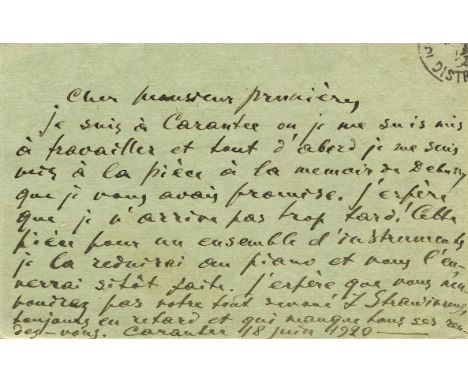 DISTR
Cher Monsieur Prunières
je suis à Carantec ou je me suis mis
à travailler et tout d'abord je me suis
mis à la pièce à la memoire de Debussy
que je vous avais promise. J'espère
que je n'arrive pas trop tard! Cette
pièce pour un ensemble d'instruments
je la reduirai au piano et vous l'en-
verrai sitôt faite. J'espère que vous n'en
voudrez pas votre tout devoué I Strawinsky,
toujours en retard et qui manque tous ses ren-
dez-vous. Carantec 18 juin 1920